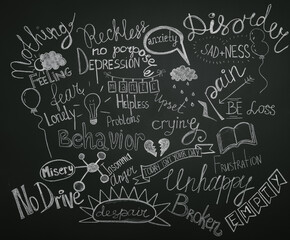 Nothing
Reckless
Disorder
no purpose
anxiety
SAD+NESS
FEELING
DEPRESSION
pain
fear
Helpless
upset
BE LOSS
Lonely
Problems
crying
Behavior
FRUSTRATION
Misery
Insomnia
Anger
Unhappy
EMPTY
No Drive
despair
Broken